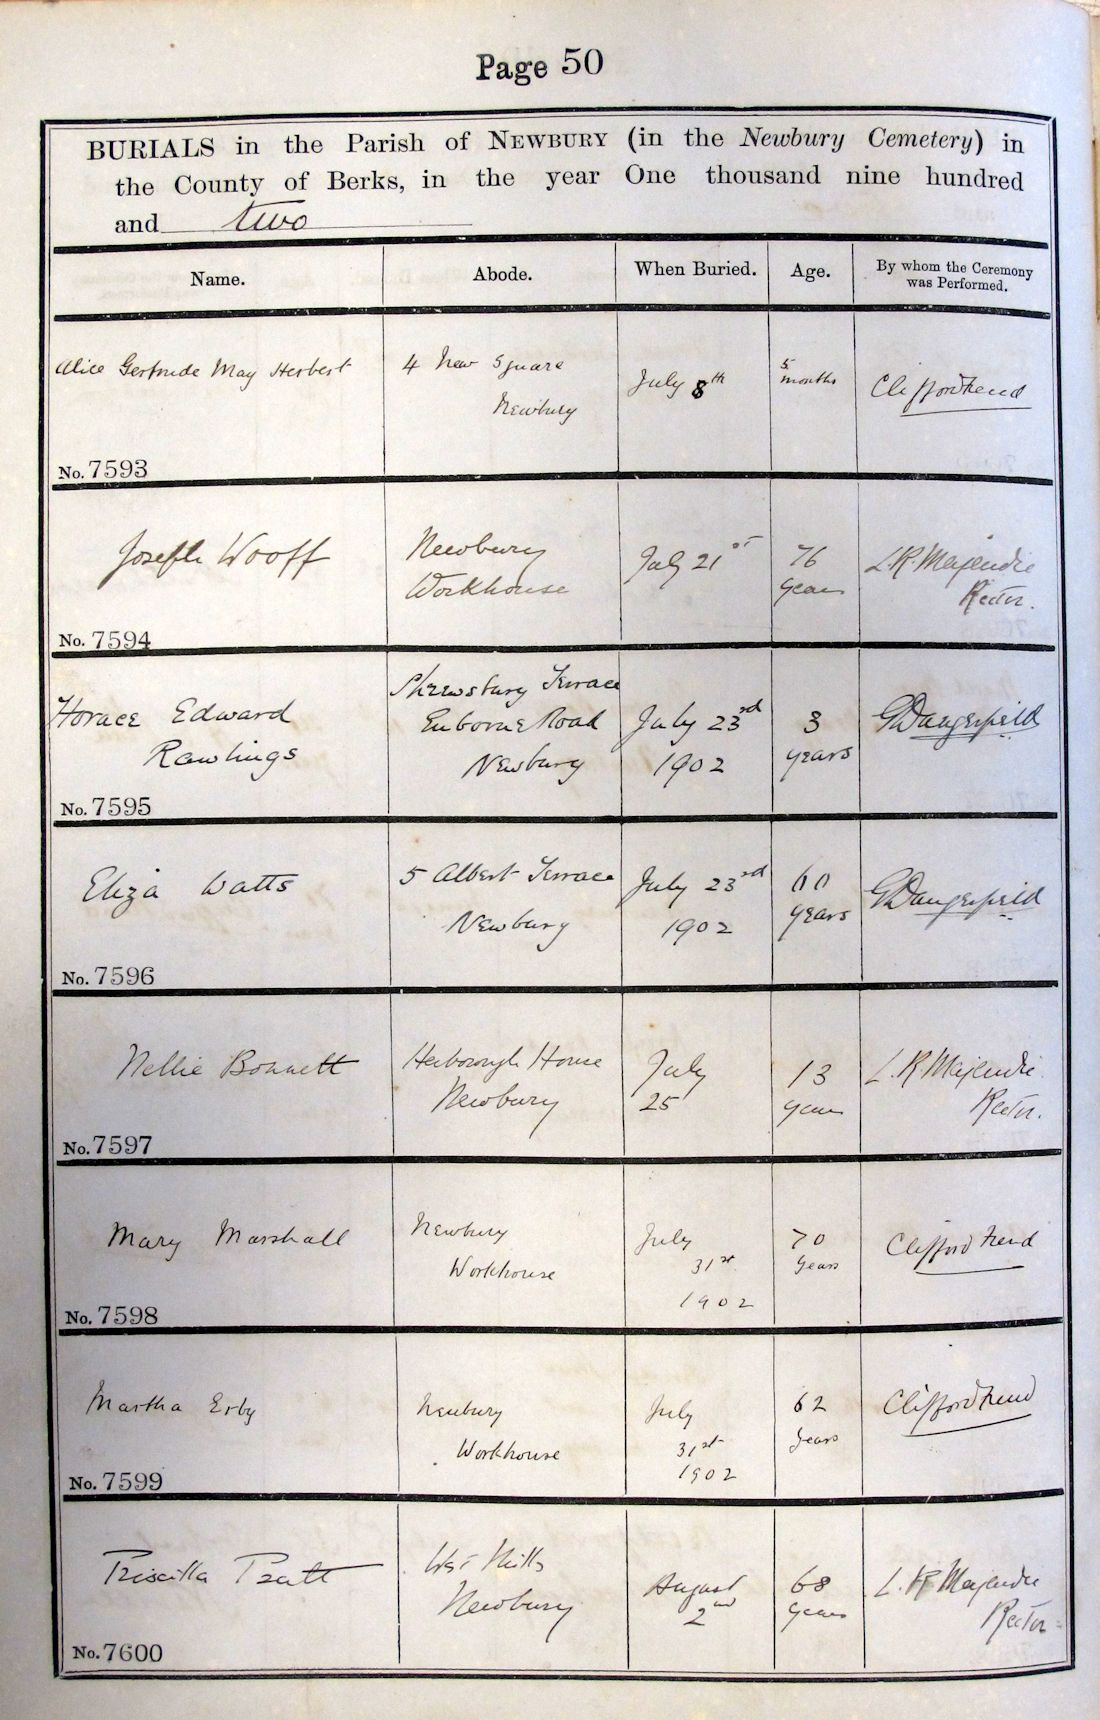 Page 50
BURIALS in the Parish of NEWBURY (in the Newbury Cemetery) in
the County of Berks, in the year One thousand nine hundred
and two
Name.
Abode.
When Buried.
Age.
By whom the Ceremony
was Performed.
Alice Gertrude May Herbert
4 New Square
Newbury
July 8th
5
months
Clifford Fiend
No. 7593
Joseph Wooff
Newbury
Workhouse
July 21st
76
years
L.R. Majendie
Rector.
No. 7594
Horace Edward
Rawlings
Shrewsbury Terrace
Enborne Road
Newbury
July 23rd
1902
3
years
G Dangerfield
No. 7595
Eliza Watts
5 Albert Terrace
Newbury
July 23rd
1902
60
years
G Dangerfield
No. 7596
Nellie Bonnett
House
Newbury
July
25
13
years
L. R. Majendie
Rector.
No. 7597
Mary Marshall
Newbury
Workhouse
July
31st
1902
70
years
Clifford
No. 7598
Martha Erby
Newbury
Workhouse
July
31st
1902
62
years
Clifford
No. 7599
Priscilla Pratt
West Mills
Newbury
August
2nd
68
years
L. R. Majendie
Rector
No. 7600